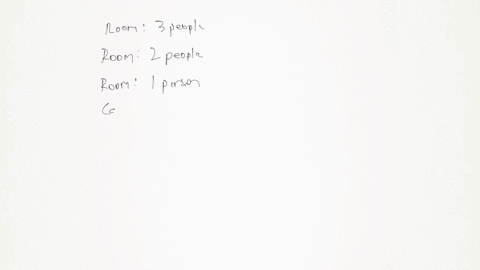 Room: 3 people
Room: 2 people
Room: 1 person